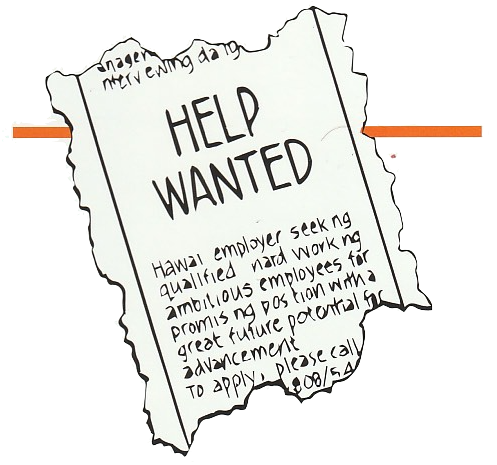 anagen
nterviewing da
HELP
WANTED
Hawai employer seeking
qualified hard working
ambitious employees for
promising position with a
great future potential for
advancement
To apply, please call
808/54